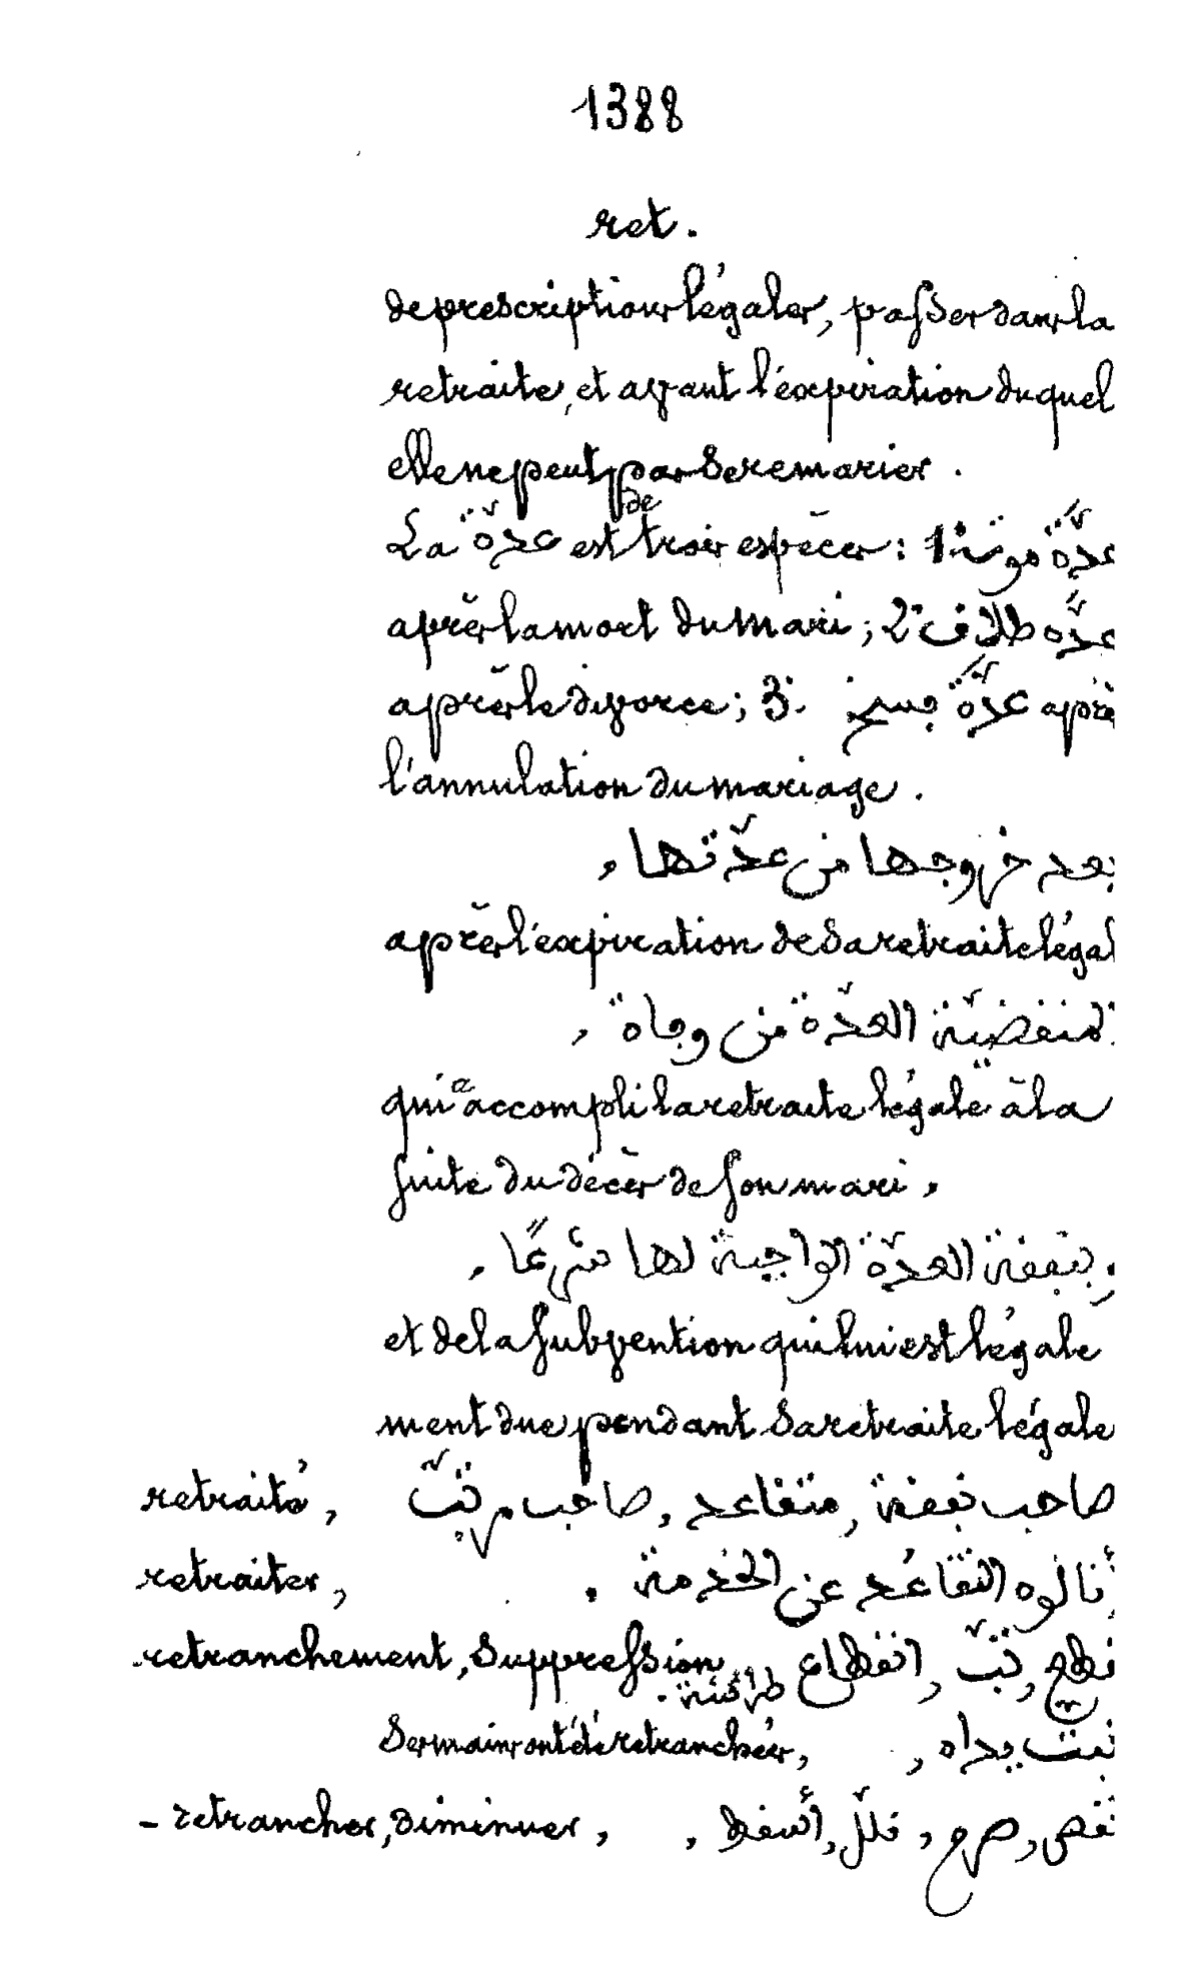 1388
ret.
de prescription légales, passer dans la
retraite, et avant l'éxpiration duquel
elle ne peut pas se remarier.
La عدّة est de trois espèces : 1° عدّة موت
après la mort du mari; 2° عدّة طلاق
après le divorce; 3° عدّة فسخ après
l'annulation du mariage.
بعد خروجها من عدّتها,
après l'éxpiration de sa retraite légal
المنقضيّة العدّة من وفاة,
qui a accompli la retraite légale à la
suite du décès de son mari,
وبنفقة العدّة الواجبة لها شرعًا,
et de la subvention qui lui est légale
ment due pendant sa retraite légale
retraité, صاحب نفقة, متقاعد, صاحب مرتّب
retraiter, أنالوه التقاعُد عن الخدمة.
retranchement, suppression قطع, تبّ, انقطاع
Ses mains ont été retranchées, تبت يداه,
- retrancher, diminuer, نقص, طرح, قلّل, أسقط,